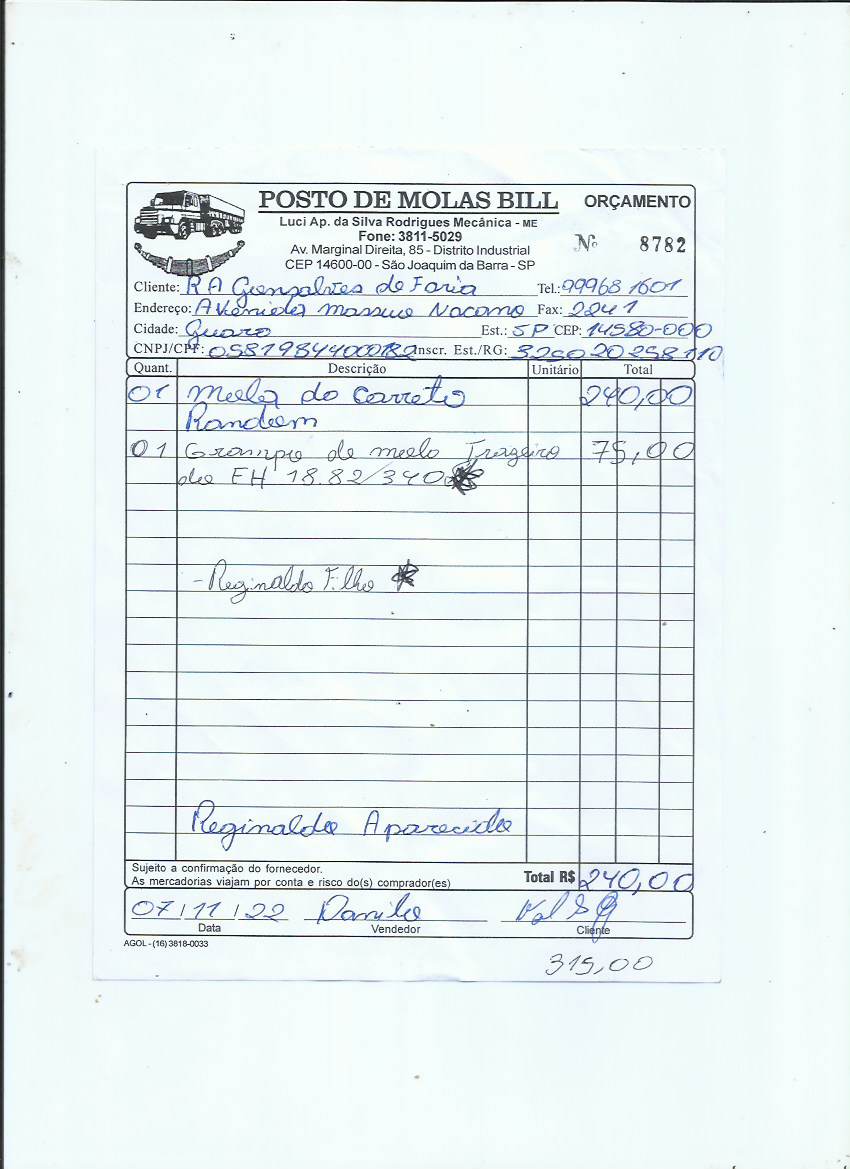 POSTO DE MOLAS BILL
ORÇAMENTO
Luci Ap. da Silva Rodrigues Mecânica - ME
Fone: 3811-5029
Nº 8782
Av. Marginal Direita, 85 - Distrito Industrial
CEP 14600-00 - São Joaquim da Barra - SP
Cliente: RA Gonsalves de Faria Tel.: 99968 1601
Endereço: Avenida Massuo Nacano Fax: 2241
Cidade: Guara Est.: SP CEP: 14580-000
CNPJ/CPF: Inscr. Est./RG:
Quant. Descrição Unitário Total
01 Mola do Carreto 240,00
Random
01 Grampo de mola Trazeiro 75,00
do FH 18.82/340
- Reginaldo Filho
Reginaldo Aparecido
Sujeito a confirmação do fornecedor.
As mercadorias viajam por conta e risco do(s) comprador(es)
Total R$ 240,00
07/11/22 Danilo
Data Vendedor Cliente
AGOL - (16) 3818-0033
315,00